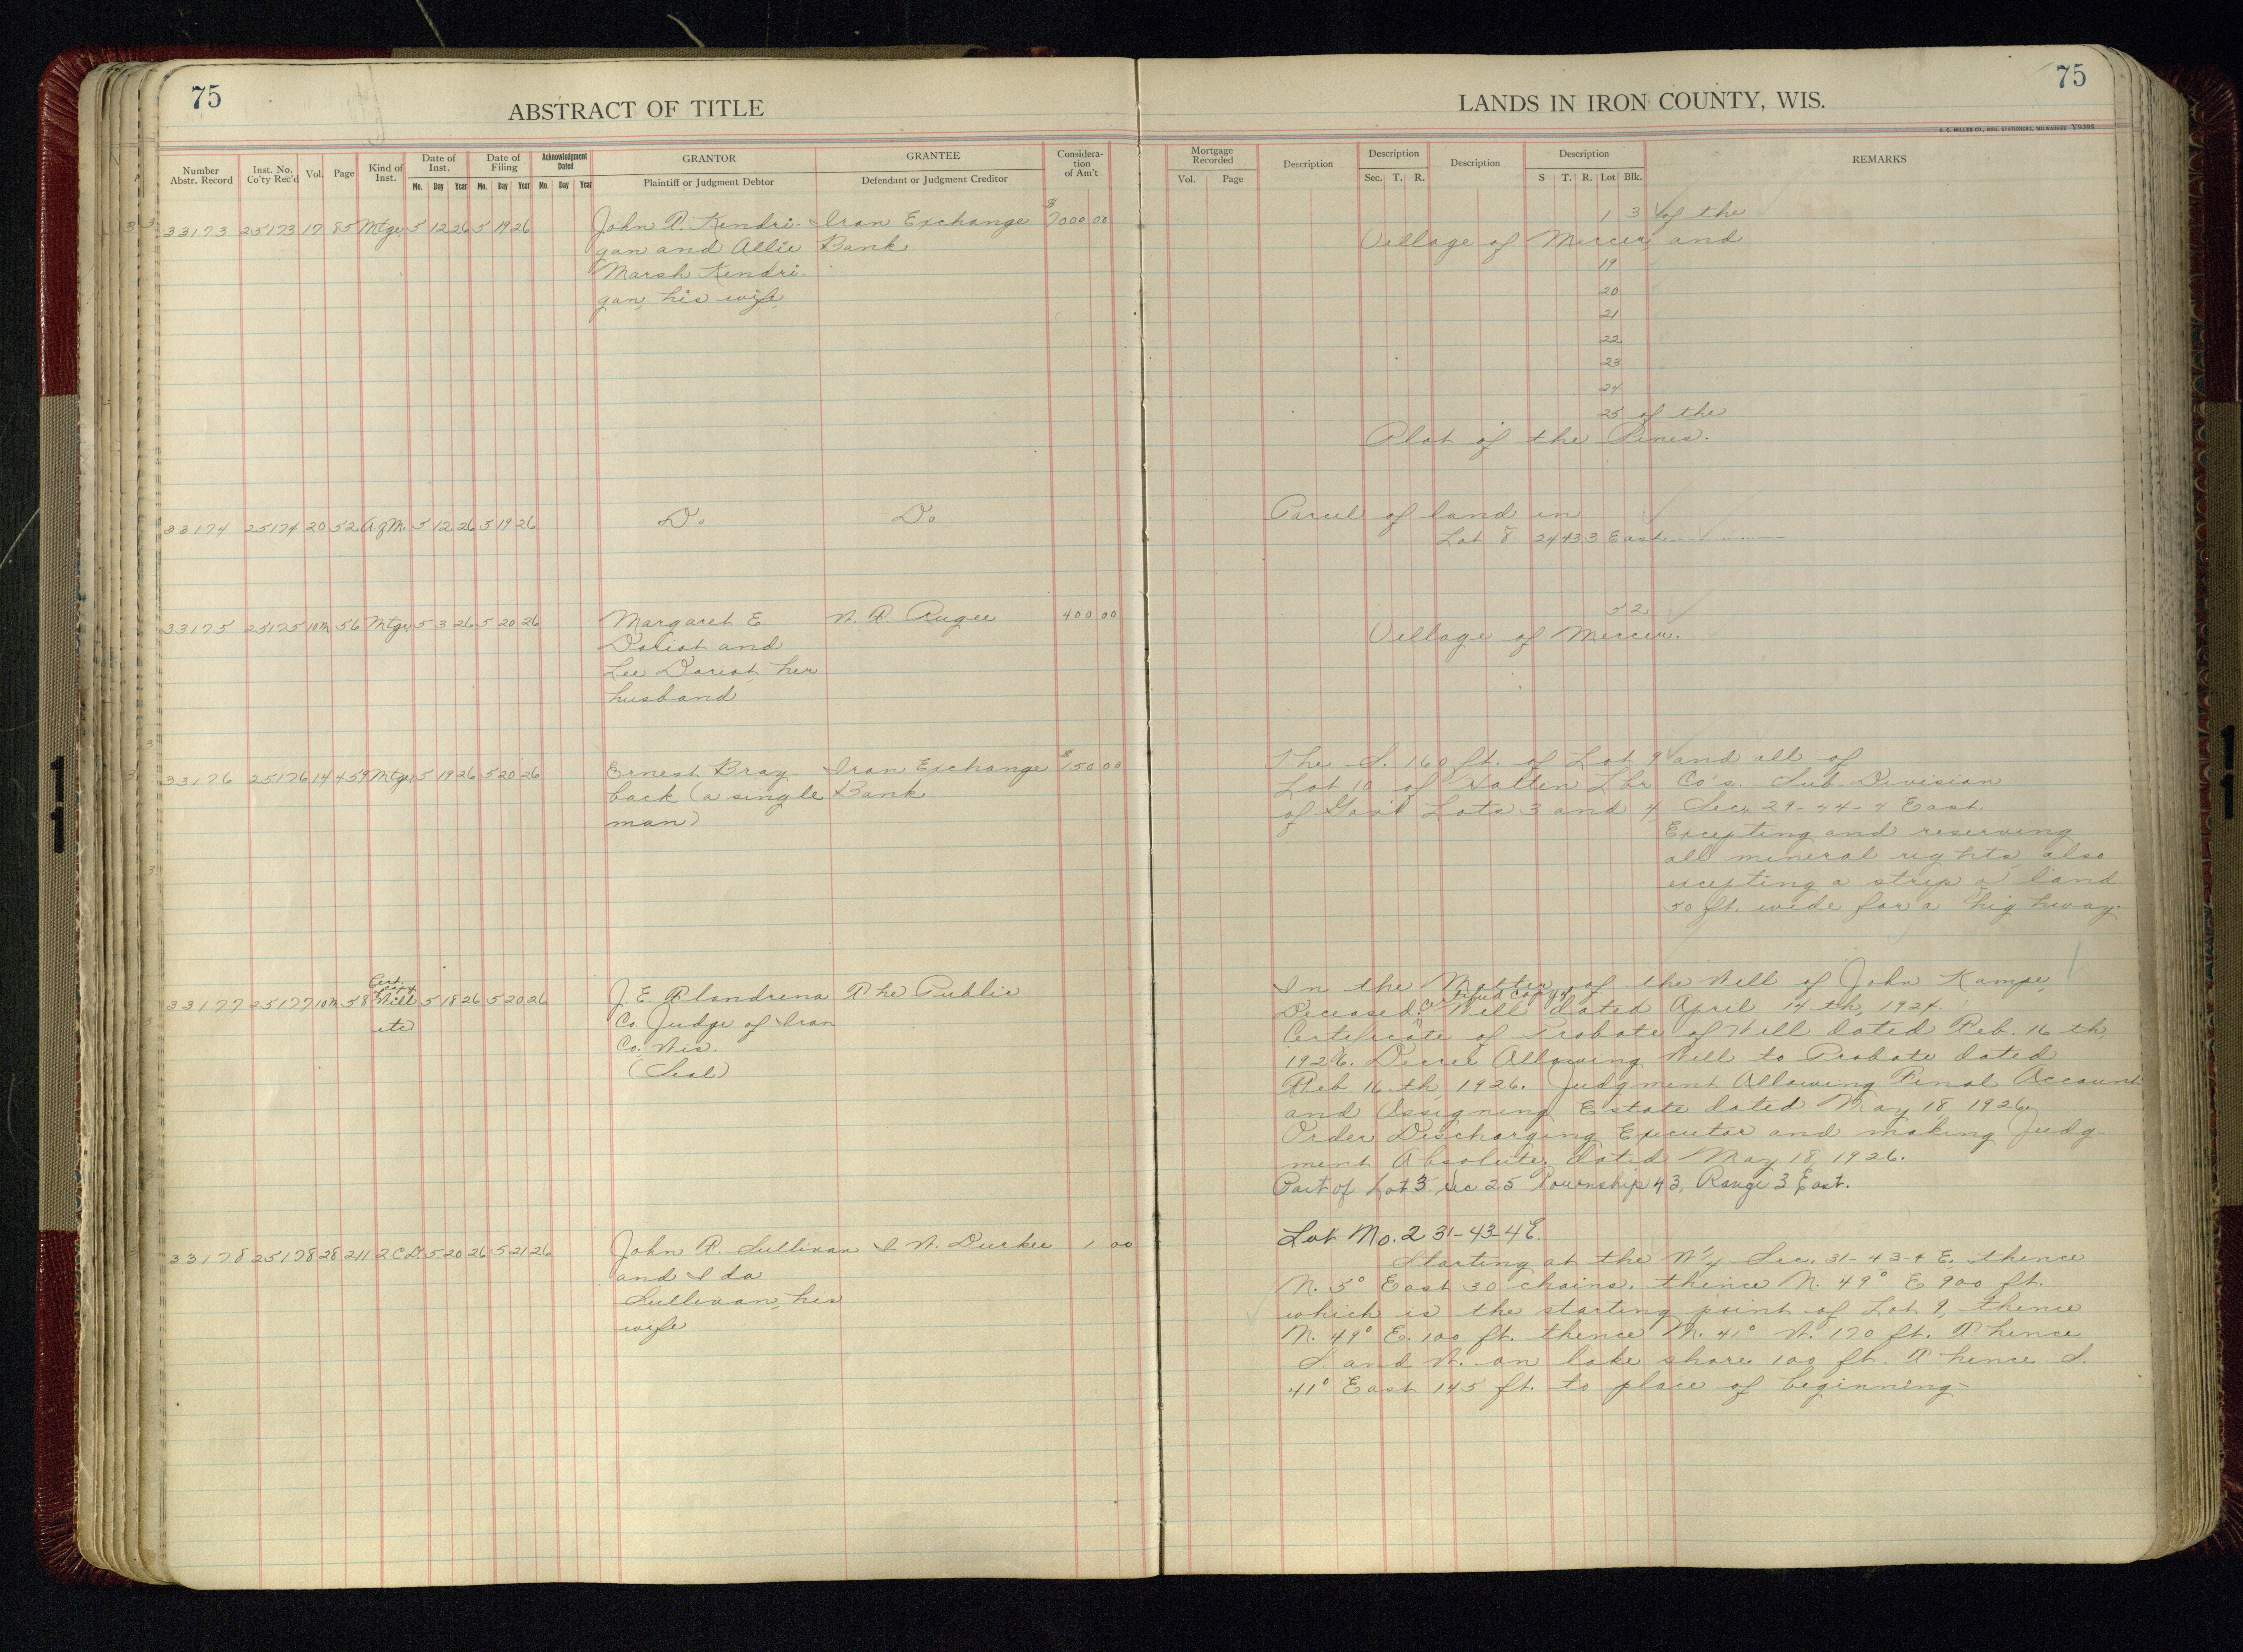 75
ABSTRACT OF TITLE
LANDS IN IRON COUNTY, WIS.
75
H. C. MILLER CO., MFG. STATIONERS, MILWAUKEE Y9395
Number Abstr. Record
Inst. No. Co'ty Rec'd
Vol.
Page
Kind of Inst.
Date of Inst.
Mo. Day Year
Date of Filing
Mo. Day Year
Acknowledgment Dated
Mo. Day Year
GRANTOR
Plaintiff or Judgment Debtor
GRANTEE
Defendant or Judgment Creditor
Considera-
tion
of Am't
Mortgage Recorded
Vol. Page
Description
Description
Sec. T. R.
Description
Description
S T. R. Lot Blk.
REMARKS
33173 25173 17 85 Mtge. 5 12 26 5 19 26 John R. Kendri- Iron Exchange $7000 00 1 3 of the
gan and Allie Bank Village of Mercer and
Marsh Kendri- 19
gan, his wife, 20
21
22
23
24
25 of the
Plat of the Pines.
33174 25174 20 52 A.of M. 5 12 26 5 19 26 Do Do Parcel of land in
Lot 8 24 43 3 East
33175 25175 10M 56 Mtge. 5 3 26 5 20 26 Margaret E. W. R. Rugee 400 00 5 2
Doriot and Village of Mercer.
Lee Doriot, her
husband
33176 25176 14 459 Mtge. 5 19 26 5 20 26 Ernest Bray- Iron Exchange $150 00 The S. 160 ft. of Lot 9 and all of
back (a single Bank Lot 10 of Hatten Lbr. Co's. Sub-Division
man) of Gov't Lots 3 and 4, Sec. 29-44-4 East.
Excepting and reserving
all mineral rights, also
excepting a strip of land
50 ft. wide for a highway.
33177 25177 10M 58 Cert. copy Will etc 5 18 26 5 20 26 J. E. Flandrena The Public In the Matter of the Will of John Kampe,
Co. Judge of Iron Deceased. Certified Copy of Will dated April 14th, 1924.
Co. Wis. Certificate of Probate of Will dated Feb. 16th,
(Seal) 1926. Decree Allowing Will to Probate dated
Feb. 16th, 1926. Judgment Allowing Final Account
and Assigning Estate dated May 18, 1926,
Order Discharging Executor and making Judg-
ment Absolute, dated May 18, 1926.
Part of Lot 3 Sec 25 Township 43, Range 3 East.
Lot No. 2 31-43-4E.
33178 25178 28 211 2 C D. 5 20 26 5 21 26 John R. Sullivan I. W. Durkee 1 00 Starting at the W¼ Sec. 31-43-4 E, thence
and Ida N. 5° East 30 chains, thence N. 49° E 900 ft.
Sullivan, his which is the starting point of Lot 9, thence
wife N. 49° E. 100 ft. thence N. 41° W. 170 ft. Thence
S. and W. on lake shore 100 ft. Thence S.
41° East 145 ft. to place of beginning-